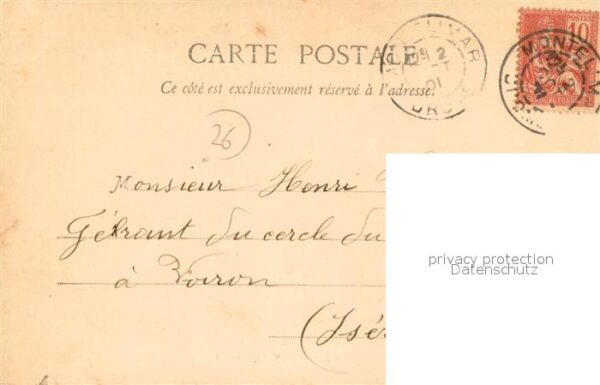 CARTE POSTALE
Ce côté est exclusivement réservé à l'adresse.
POSTES
10
MONTEL
26
Monsieur Henri
Gérant du cercle du
à Voiron
(Isèr
privacy protection
Datenschutz